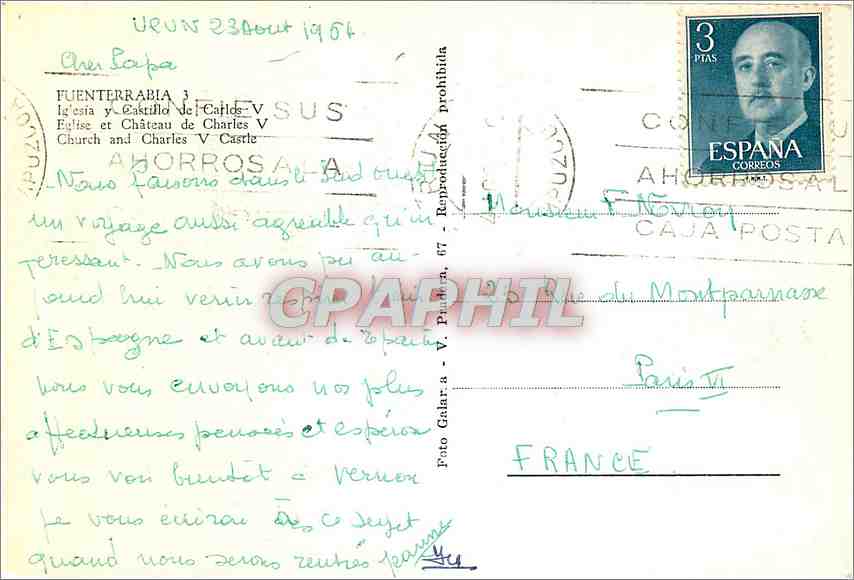 23 Aout 196
Cher Papa
FUENTERRABIA 3
Iglesia y Castillo de Carlos V
Eglise et Château de Charles V
Church and Charles V Castle
CONFIE SUS
AHORROS A LA
Nous faisons dans le Sud ouest
un voyage aussi agreable qu'in
teressant. Nous avons pu au-
jourd hui venir
d'Espagne et avant de repartir
nous vous envoyons nos plus
affectueuses pensées et espérons
vous voir bientôt à
Je vous écrirai à ce sujet
quand nous serons rentrés
Foto Galarza - V. Pradera, 67 - Reproducción prohibida
3
PTAS
ESPAÑA
CORREOS
AHORROS A L
CAJA POSTA
Monsieur F.
26 Rue du Montparnasse
Paris VI
FRANCE
CPAPHIL